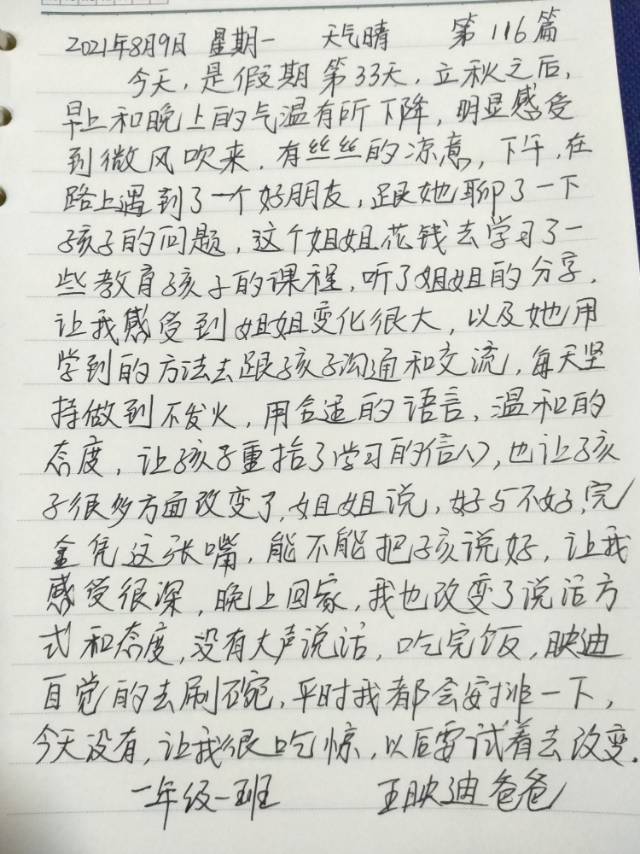 2021年8月9日 星期一 天气晴 第116篇
今天，是假期第33天，立秋之后，
早上和晚上的气温有所下降，明显感受
到微风吹来，有丝丝的凉意，下午，在
路上遇到了一个好朋友，跟她聊了一下
孩子的问题，这个姐姐花钱去学习了一
些教育孩子的课程，听了姐姐的分享，
让我感受到姐姐变化很大，以及她用
学到的方法去跟孩子沟通和交流，每天坚
持做到不发火，用合适的语言，温和的
态度，让孩子重拾了学习的信心，也让孩
子很多方面改变了，姐姐说，好与不好，完
全凭这张嘴，能不能把孩说好，让我
感受很深，晚上回家，我也改变了说话方
式和态度，没有大声说话，吃完饭，映迪
自觉的去刷碗，平时我都会安排一下，
今天没有，让我很吃惊，以后要试着去改变.
一年级一班 王映迪爸爸